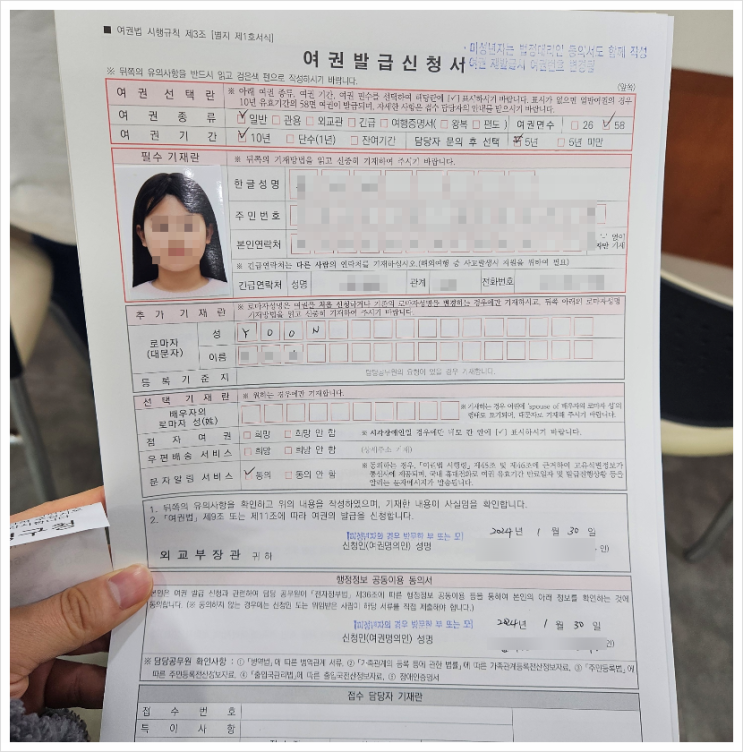 ■ 여권법 시행규칙 제3조 [별지 제1호서식]
여 권 발 급 신 청 서
미성년자는 법정대리인 동의서도 함께 작성
여권 재발급시 여권번호 변경됨
※ 뒤쪽의 유의사항을 반드시 읽고 검은색 펜으로 작성하시기 바랍니다.
(앞쪽)
여 권 선 택 란
※ 아래 여권 종류, 여권 기간, 여권 면수를 선택하여 해당란에 [✓] 표시하시기 바랍니다. 표시가 없으면 일반여권의 경우
10년 유효기간의 58면 여권이 발급되며, 자세한 사항은 접수 담당자의 안내를 받으시기 바랍니다.
여 권 종 류 ☑ 일반 □ 관용 □ 외교관 □ 긴급 □ 여행증명서( □ 왕복 □ 편도 ) 여권면수 □ 26 ☑ 58
여 권 기 간 ☑ 10년 □ 단수(1년) □ 잔여기간 담당자 문의 후 선택 ☑ 5년 □ 5년 미만
필수 기재란
※ 뒤쪽의 기재방법을 읽고 신중히 기재하여 주시기 바랍니다.
한글성명
주민번호
본인연락처
※ 긴급연락처는 다른 사람의 연락처를 기재하십시오. (해외여행 중 사고발생시 지원을 위하여 필요)
긴급연락처 성명 관계 전화번호
추 가 기 재 란
※ 로마자성명은 여권을 처음 신청하거나 기존의 로마자성명을 변경하는 경우에만 기재하시고, 뒤쪽 아래의 로마자성명
기재방법을 읽고 신중히 기재하여 주시기 바랍니다.
로마자
(대문자)
성 Y O O N
이름
등 록 기 준 지
담당공무원의 요청이 있을 경우 기재합니다.
선 택 기 재 란
※ 원하는 경우에만 기재합니다.
배우자의
로마자 성(姓)
※ 기재하는 경우 여권에 'spouse of 배우자의 로마자 성'의
형태로 표기되며, 대문자로 기재해 주시기 바랍니다.
점 자 여 권 □ 희망 □ 희망 안 함 ※ 시각장애인일 경우에만 뒤로 칸 안에 [✓] 표시하시기 바랍니다.
우편배송 서비스 □ 희망 □ 희망 안 함
문자알림 서비스 ☑ 동의 □ 동의 안 함
1. 뒤쪽의 유의사항을 확인하고 위의 내용을 작성하였으며, 기재한 내용이 사실임을 확인합니다.
2. 「여권법」 제9조 또는 제11조에 따라 여권의 발급을 신청합니다.
2024년 1 월 30 일
외 교 부 장 관 귀 하
신청인(여권명의인) 성명
행정정보 공동이용 동의서
본인은 여권 발급 신청과 관련하여 담당 공무원이 「전자정부법」 제36조에 따른 행정정보 공동이용 등을 통하여 본인의 아래 정보를 확인하는 것에
동의합니다. (※ 동의하지 않는 경우에는 신청인 또는 위임받은 사람이 해당 서류를 직접 제출해야 합니다.)
2024년 1 월 30 일
신청인(여권명의인) 성명
※ 담당공무원 확인사항 : ① 「병역법」에 따른 병역관계 서류, ② 「가족관계의 등록 등에 관한 법률」에 따른 가족관계등록전산정보자료, ③ 「주민등록법」에
따른 주민등록전산정보자료, ④ 「출입국관리법」에 따른 출입국전산정보자료, ⑤ 장애인증명서
접수 담당자 기재란
접 수 번 호
특 이 사 항